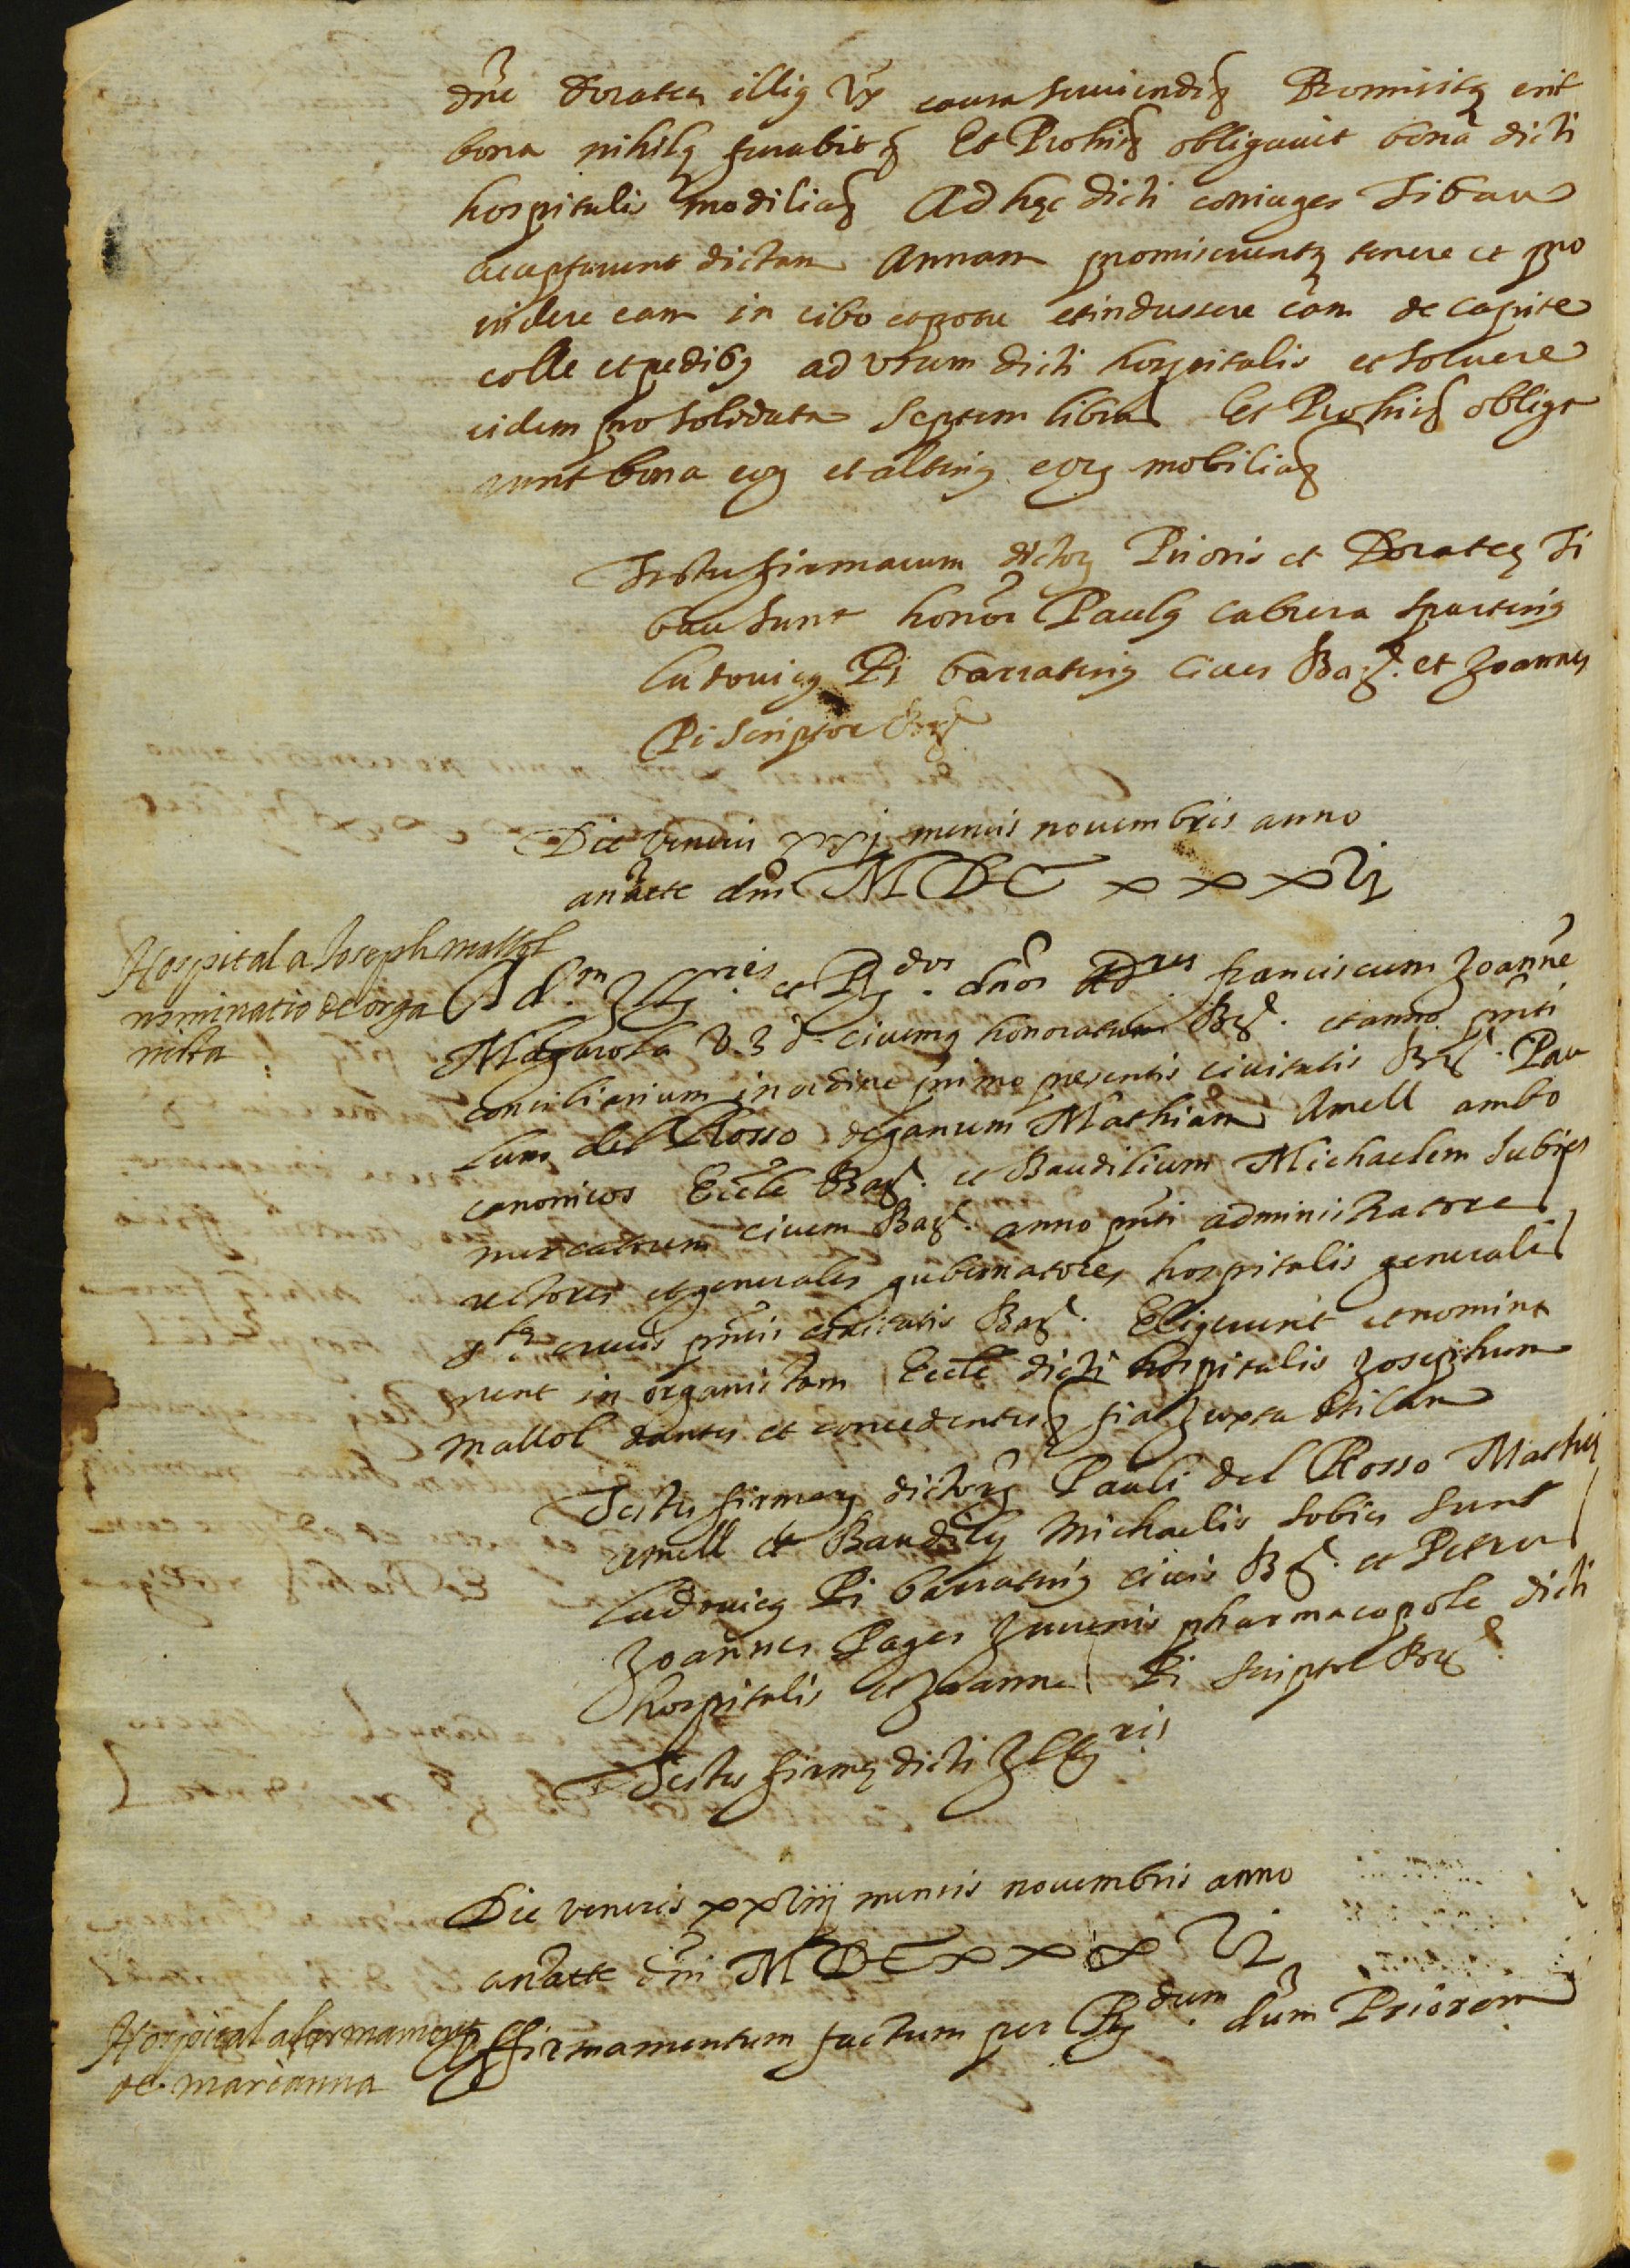 dne Doratea illiq vx causa seruiendi Promisitq erit
bona nihilq furabitq Et Prohis obligauit bona dicti
hospitalis mobilia Ad hęc dicti coniuges Tibau
acceptarunt dictam Annam promiseruntq tenere et pro
uidere eam in cibo et potu et induere eam de capite
colle et pedibq ad vsum dicti hospitalis et soluere
eidem pro soldata septem libras Et Prohis obliga
runt bona eoq et altriq eorq mobilia
Testes firmarum dictorq Prioris et Doratea Ti
bau sunt honor Paulq Cabrera sparteriq
Ludouicq Pi barrateriq ciues Bar. et Joannes
Pi scriptor Bar
Die Veneris xxj mensis nouembris anno
a natte dni MDCxxxvj
Hospital a Joseph mallol
nominatio de orga
nista
Ad.m Illq.res et Rq.dos dnos Dres franciscum Joanne
Magarola V. J. D. ciuemq honoratum Bar. et anno pnti
consiliarium in ordine primo presentis ciuitatis Bar. Pau
lum del Rosso deganum Mathiam Amell ambo
canonicos Eccle Bar. et Baudilium Michaelem Subies
mercatorem ciuem Bar. anno pnti administratores
rectores et generales gubernatores hospitalis generalis
Ste crucis pntis ciuitatis Bar. Eligerunt et nomina
runt in organistam Eccle dicti hospitalis Josephum
Mallol dantes et concedentes fiat iuxta stilum
Testes firmarq dictorq Pauli del Rosso Mathię
Amell et Baudilij Michaelis Sobies sunt
Ludouicq Pi barrateriq ciuis Bar. et Petrus
Joannes Pages Juuenis pharmacopole dicti
hospitalis et Joannes Pi scriptor Bar.
Testes firmę dicti Illq.ris
Die veneris xxviij mensis nouembris anno
a natte dni MDCxxxvj
Hospital afermament
de marianna
Affirmamentum factum per Rq.dum dum Priorem